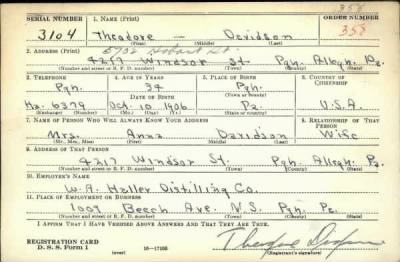 358
SERIAL NUMBER 1. NAME (Print) ORDER NUMBER
3104 Theodore — Davidson 358
(First) (Middle) (Last)
5732 Hobart St.
2. ADDRESS (Print)
4217 Windsor St. Pgh. Allegh. Pa.
(Number and street or R. F. D. number) (Town) (County) (State)
3. TELEPHONE 4. AGE IN YEARS 5. PLACE OF BIRTH 6. COUNTRY OF CITIZENSHIP
Pgh. 34 Pgh.
DATE OF BIRTH
Ha. 6379 Oct. 10 1906 Pa. U.S.A.
(Exchange) (Number) (Mo.) (Day) (Yr.) (State or country)
7. NAME OF PERSON WHO WILL ALWAYS KNOW YOUR ADDRESS 8. RELATIONSHIP OF THAT PERSON
Mrs. Anna Davidson Wife
(Mr., Mrs., Miss) (First) (Middle) (Last)
9. ADDRESS OF THAT PERSON
4217 Windsor St. Pgh. Allegh. Pa.
(Number and street or R. F. D. number) (Town) (County) (State)
10. EMPLOYER'S NAME
W. A. Haller Distilling Co.
11. PLACE OF EMPLOYMENT OR BUSINESS
1009 Beech Ave. N.S. Pgh. Pa.
(Number and street or R. F. D. number) (Town) (County) (State)
I AFFIRM THAT I HAVE VERIFIED ABOVE ANSWERS AND THAT THEY ARE TRUE.
REGISTRATION CARD
D. S. S. Form 1 (over) 16—17105 Theodore Davidson
(Registrant's signature)